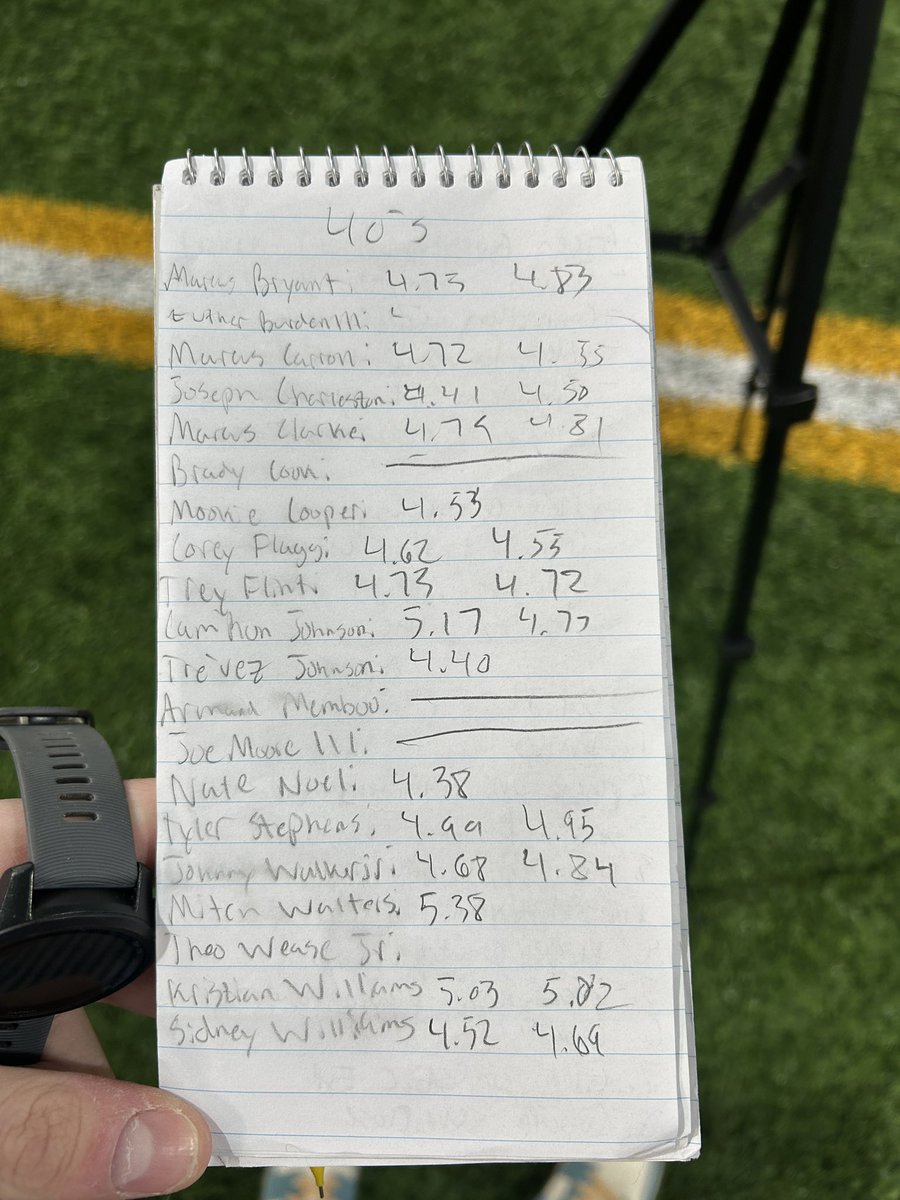 40's
Marcus Bryant: 4.75 4.83
Luther Burden III:
Marcus Carroll: 4.72 4.55
Joseph Charleston: 4.41 4.50
Marcus Clarke: 4.79 4.81
Brady Cook:
Mookie Cooper: 4.53
Corey Flagg: 4.62 4.55
Trey Flint: 4.73 4.72
Cam'Ron Johnson: 5.17 4.77
Tre'vez Johnson: 4.40
Armand Membou:
Joe Moore III:
Nate Noel: 4.38
Tyler Stephens: 4.99 4.95
Johnny Walker Jr: 4.68 4.84
Mitch Walters: 5.38
Theo Wease Jr:
Kristian Williams 5.03 5.02
Sidney Williams 4.52 4.69